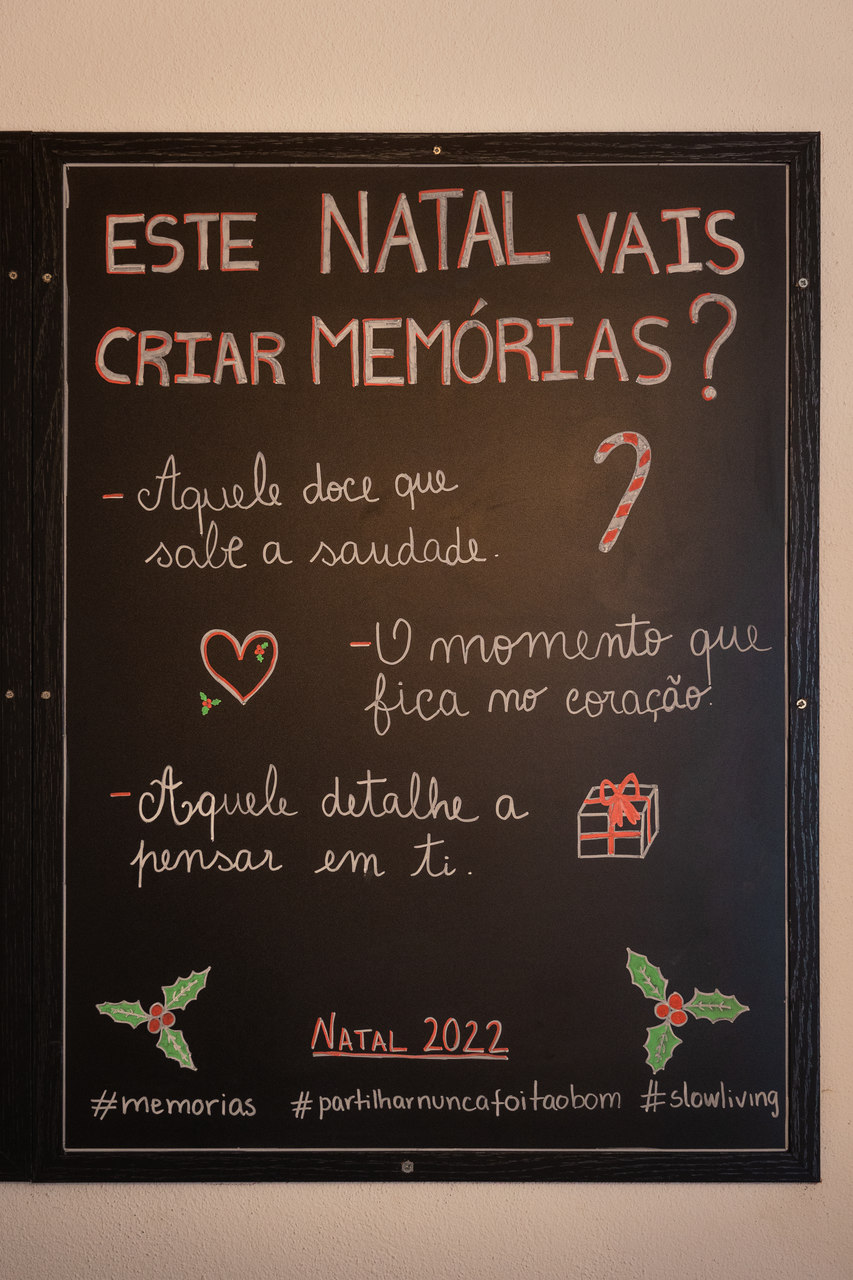 ESTE NATAL VAIS
CRIAR MEMÓRIAS?
- Aquele doce que
sabe a saudade.
- O momento que
fica no coração.
- Aquele detalhe a
pensar em ti.
NATAL 2022
#memorias #partilharnuncafoitaobom #slowliving